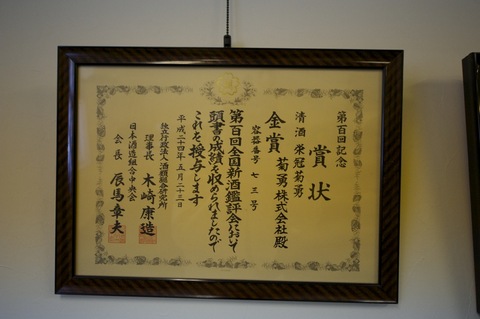 第百回記念
賞状
清酒 栄冠菊勇
菊勇株式会社殿
金賞
容器番号 七三号
第百回全国新酒鑑評会において
頭書の成績を収められましたので
これを授与します
平成二十四年五月二十三日
独立行政法人酒類総合研究所
理事長 木崎康造
日本酒造組合中央会
会長 辰馬章夫